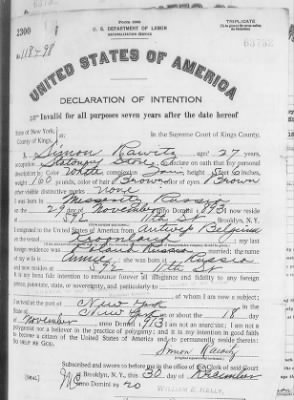 Form 2202
U. S. DEPARTMENT OF LABOR
NATURALIZATION SERVICE
TRIPLICATE
2300
No 118498
UNITED STATES OF AMERICA
DECLARATION OF INTENTION
Invalid for all purposes seven years after the date hereof
State of New York,
County of Kings,
ss:
In the Supreme Court of Kings County.
I, Simon Rawitz, aged 27 years,
occupation Stationery Store, do declare on oath that my personal
description is: Color White, complexion, height 5 feet 6 inches,
weight 160 pounds, color of hair Brown, color of eyes Brown
other visible distinctive marks None
I was born in Russia
on the 27 day of November, anno Domini 1; I now reside
at 592 11th St, Brooklyn, N. Y.
I emigrated to the United States of America from Antwerp Belgium
on the vessel Kroonland; my last
foreign residence was Russia. I am married; the name
of my wife is Annie; she was born at Russia
and now resides at 592 11th St
It is my bona fide intention to renounce forever all allegiance and fidelity to any foreign
prince, potentate, state, or sovereignty, and particularly to
of whom I am now a subject;
I arrived at the port of New York, in the
State of New York, on or about the 18 day
of November, anno Domini 1913; I am not an anarchist; I am not a
polygamist nor a believer in the practice of polygamy; and it is my intention in good faith
to become a citizen of the United States of America and to permanently reside therein:
SO HELP ME GOD.
Subscribed and sworn to before me in the office of the Clerk of said Court
at Brooklyn, N. Y., this 30 day of December
anno Domini 1920
[SEAL]
WILLIAM E. KELLY,